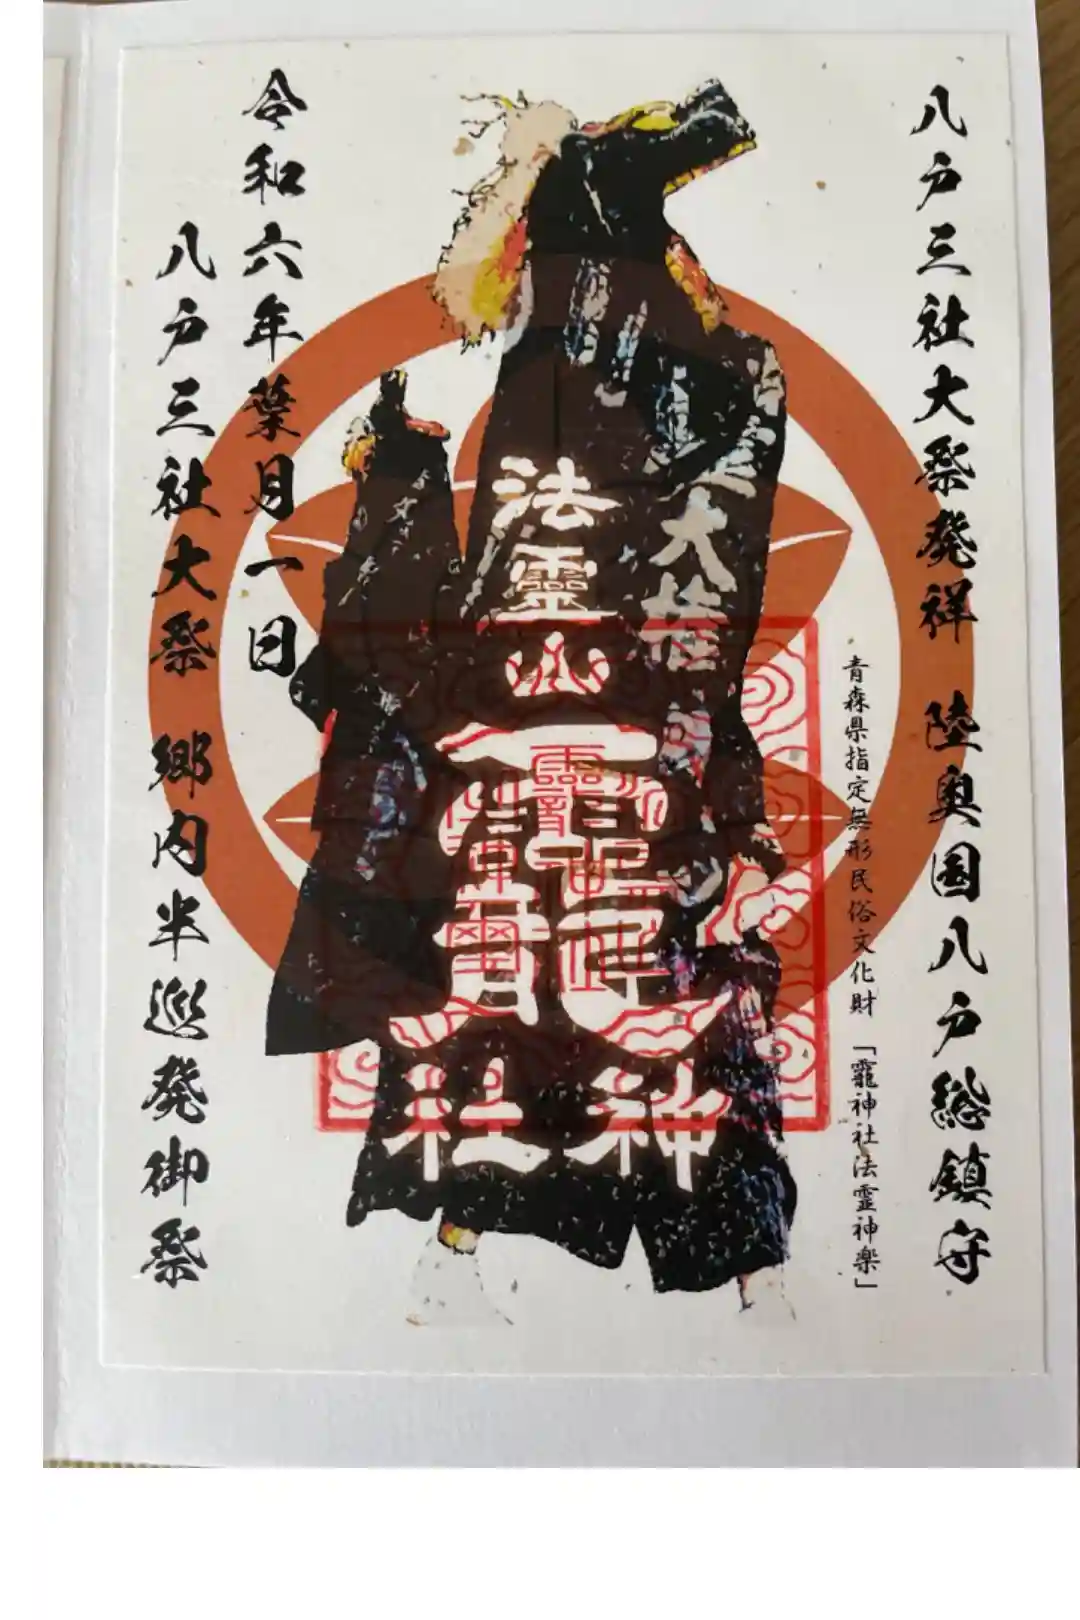 八戸三社大祭発祥　陸奥国八戸総鎮守
青森県指定無形民俗文化財「龗神社法霊神楽」
法靈山
龗神社
令和六年葉月一日
八戸三社大祭　郷内半巡発御祭